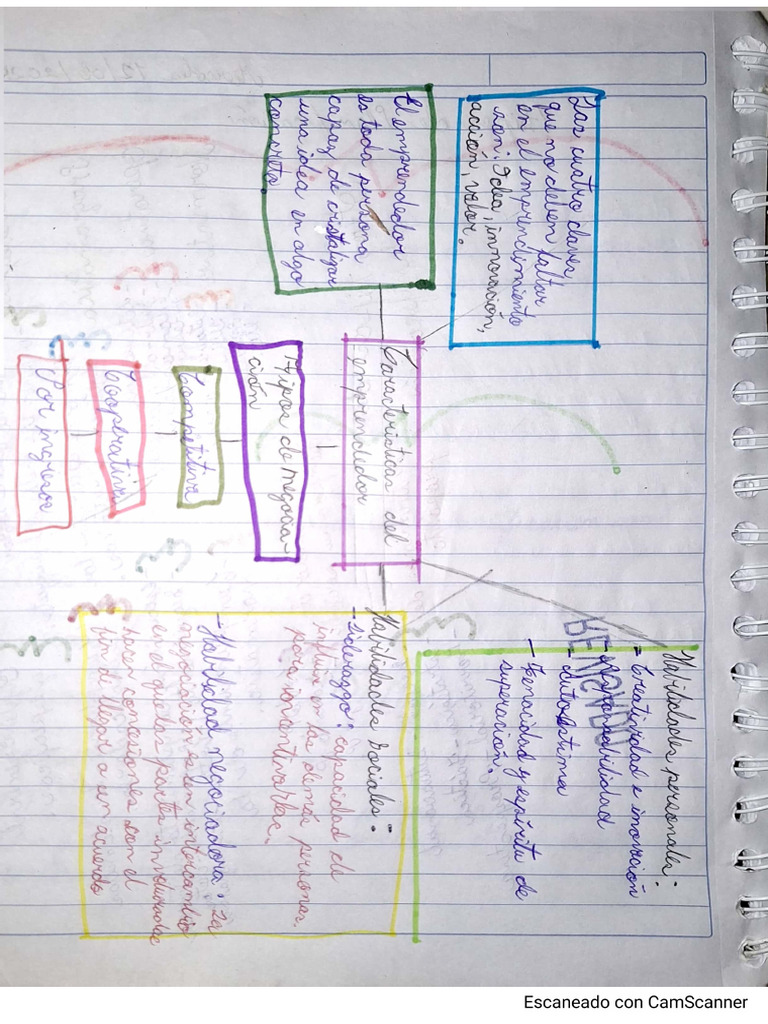 Las cuatro claves
que no deben faltar
en el emprendimiento
son: Idea, innovación,
acción, valor.
El emprendedor
es toda persona
capaz de cristalizar
una idea en algo
concreto
Características del
emprendedor
Tipos de negocia-
ción
Competitiva
Cooperativa
Por ingresos
Habilidades personales:
- Creatividad e inovación
- Responsabilidad
- Autoestima
- Tenacidad y espíritu de
superación.
BENGNDO
Habilidades Sociales:
- Liderazgo: capacidad
influir en las demás personas
para incentivarlas.
- Habilidad negociadora: La
negociación es un intercambio
en el que las partes involucradas
hacen concesiones con el
fin de llegar a un acuerdo
Escaneado con CamScanner